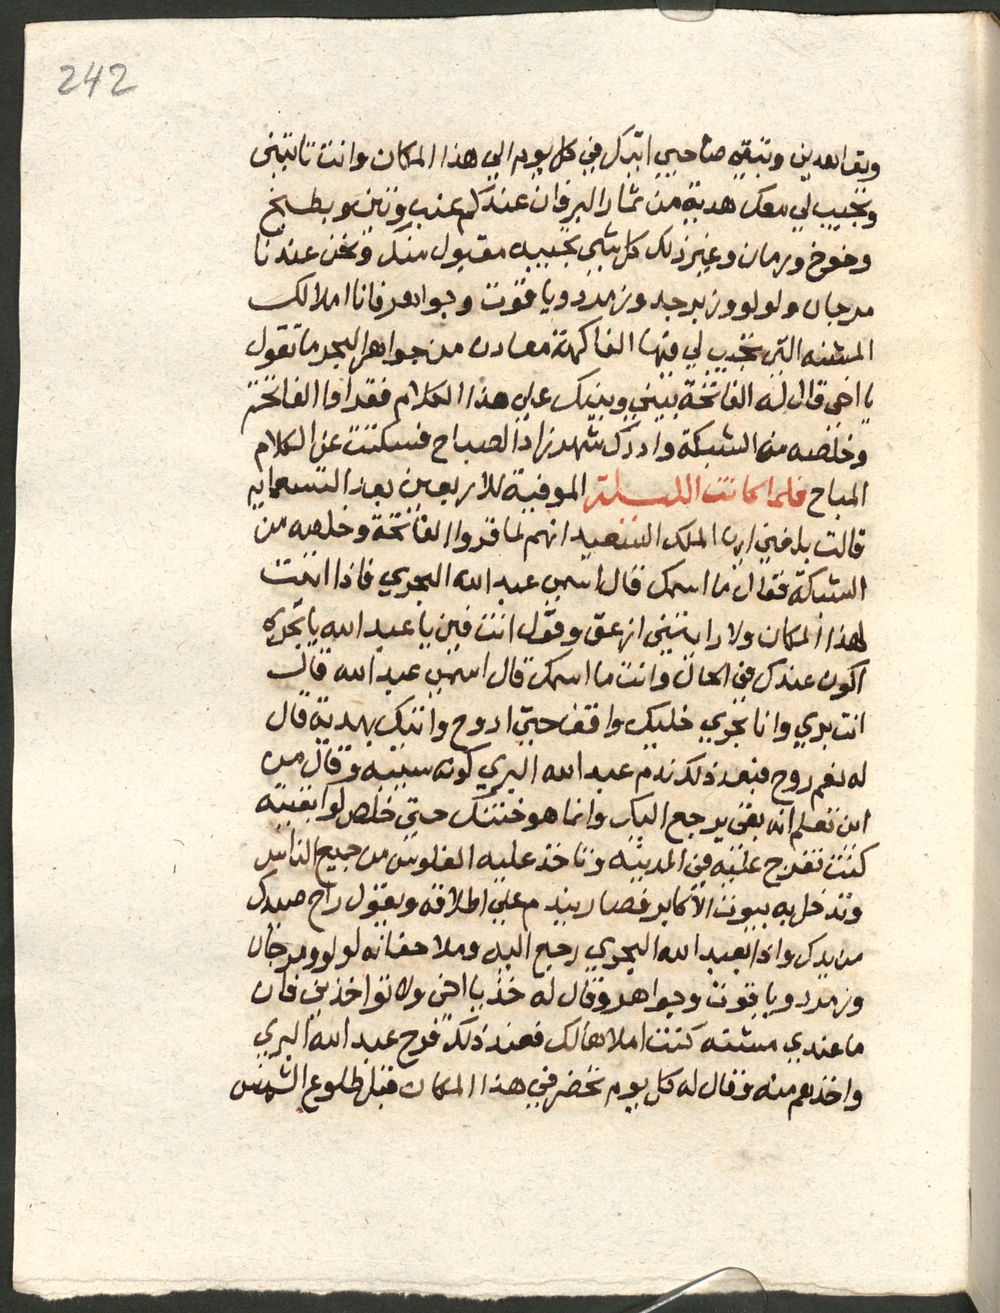 242
وتعاهدني وتبقي صاحبي اتيك في كل يوم الي هذا المكان وانت تاتيني
وتجيب لي معك هدية من ثمار البر فان عندكم عنب وتين وبطيخ
وخوخ ورمان وغير ذلك كل شي تجيبه مقبول منك ونحن عندنا
مرجان ولولو وزبرجد وزمرد وياقوت وجواهر فانا املا لك
المشنه التي تجيب لي فيها الفاكهة معادن من جواهر البحر ما تقول
يا اخي قال له الفاتحة بيني وبينك علي هذا الكلام فقراوا الفاتحة
وخلصه من الشبكة وادرك شهرزاد الصباح فسكتت عن الكلام
المباح فلما كانت الليلة الموفية للاربعين بعد التسعمايه
قالت بلغني ايها الملك السعيد انهم لما قروا الفاتحة وخلصه من
الشبكة فقال ما اسمك قال اسمي عبد الله البحري فاذا اتيت
لهذا المكان ولا رايتني ازعق وقول انت فين يا عبد الله يا بحري
اكون عندك في الحال وانت ما اسمك قال اسمي عبد الله قال
انت بري وانا بحري خليك واقف حتي اروح واتيك بهدية قال
له نعم روح فبعد ذلك ندم عبد الله البري كونه سيبه وقال من
اين تعلم انه بقي يرجع اليك وانما هو ضحك حتي خلص لو ابقيته
كنت تفرج عليه في المدينه وتاخذ عليه الفلوس من جميع الناس
وتدخل به بيوت الاكابر فصار يندم علي اطلاقه ويقول راح صيدك
من يدك واذا بعبد الله البحري رجع اليه وملا حفانه لولو ومرجان
وزمرد وياقوت وجواهر وقال له خذ يا اخي ولا تواخذني فان
ما عندي مشنه كنت املاها لك فعند ذلك فرح عبد الله البري
واخذهم منه وقال له كل يوم تحضر في هذا المكان قبل طلوع الشمس